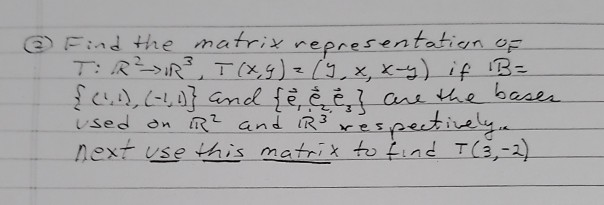 ② Find the matrix representation of
T: ℝ²→ℝ³, T(x,y) = (y, x, x-y) if 𝔹=
{(1,1), (-1,1)} and {e⃗₁, e⃗₂, e⃗₃} are the bases
used on ℝ² and ℝ³ respectively.
Next use this matrix to find T(3,-2)